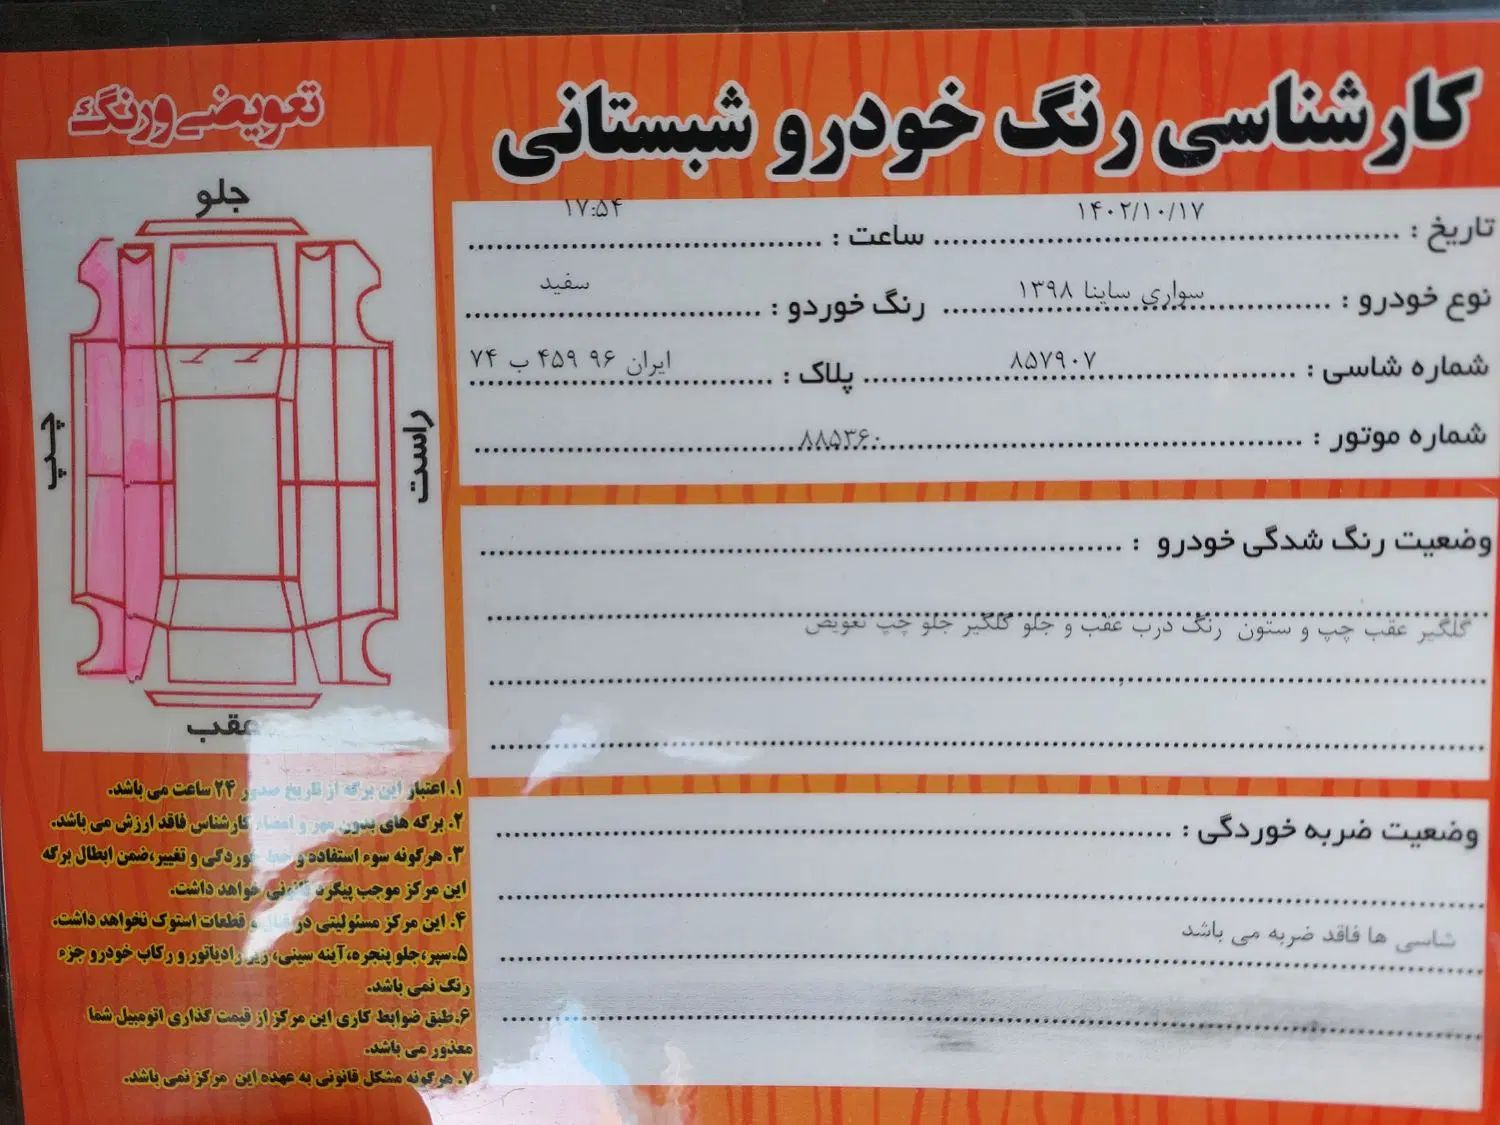 کارشناسی رنگ خودرو شبستانی
تاریخ : ۱۴۰۲/۱۰/۱۷ ساعت : ۱۷:۵۴
نوع خودرو : سواری ساینا ۱۳۹۸ رنگ خوردو : سفید
شماره شاسی : ۸۵۷۹۰۷ پلاک : ایران ۹۶ ۴۵۹ ب ۷۴
شماره موتور : ۸۸۵۳۶۰
وضعیت رنگ شدگی خودرو :
گلگیر عقب چپ و ستون رنگ درب عقب و جلو گلگیر جلو چپ تعویض
وضعیت ضربه خوردگی :
شاسی ها فاقد ضربه می باشد
تعویضی و رنگ
جلو
چپ
راست
عقب
۱. اعتبار این برگه از تاریخ صدور ۲۴ ساعت می باشد.
۲. برگه های بدون مهر و امضاء کارشناس فاقد ارزش می باشد.
۳. هرگونه سوء استفاده و خط خوردگی و تغییر،ضمن ابطال برگه
این مرکز موجب پیگرد قانونی خواهد داشت.
۴. این مرکز مسئولیتی در قبال قطعات استوک نخواهد داشت.
۵. سپر،جلو پنجره،آینه سینی، زیر رادیاتور و رکاب خودرو جزء
رنگ نمی باشد.
۶.طبق ضوابط کاری این مرکز از قیمت گذاری اتومبیل شما
معذور می باشد.
۷. هرگونه مشکل قانونی به عهده این مرکز نمی باشد.